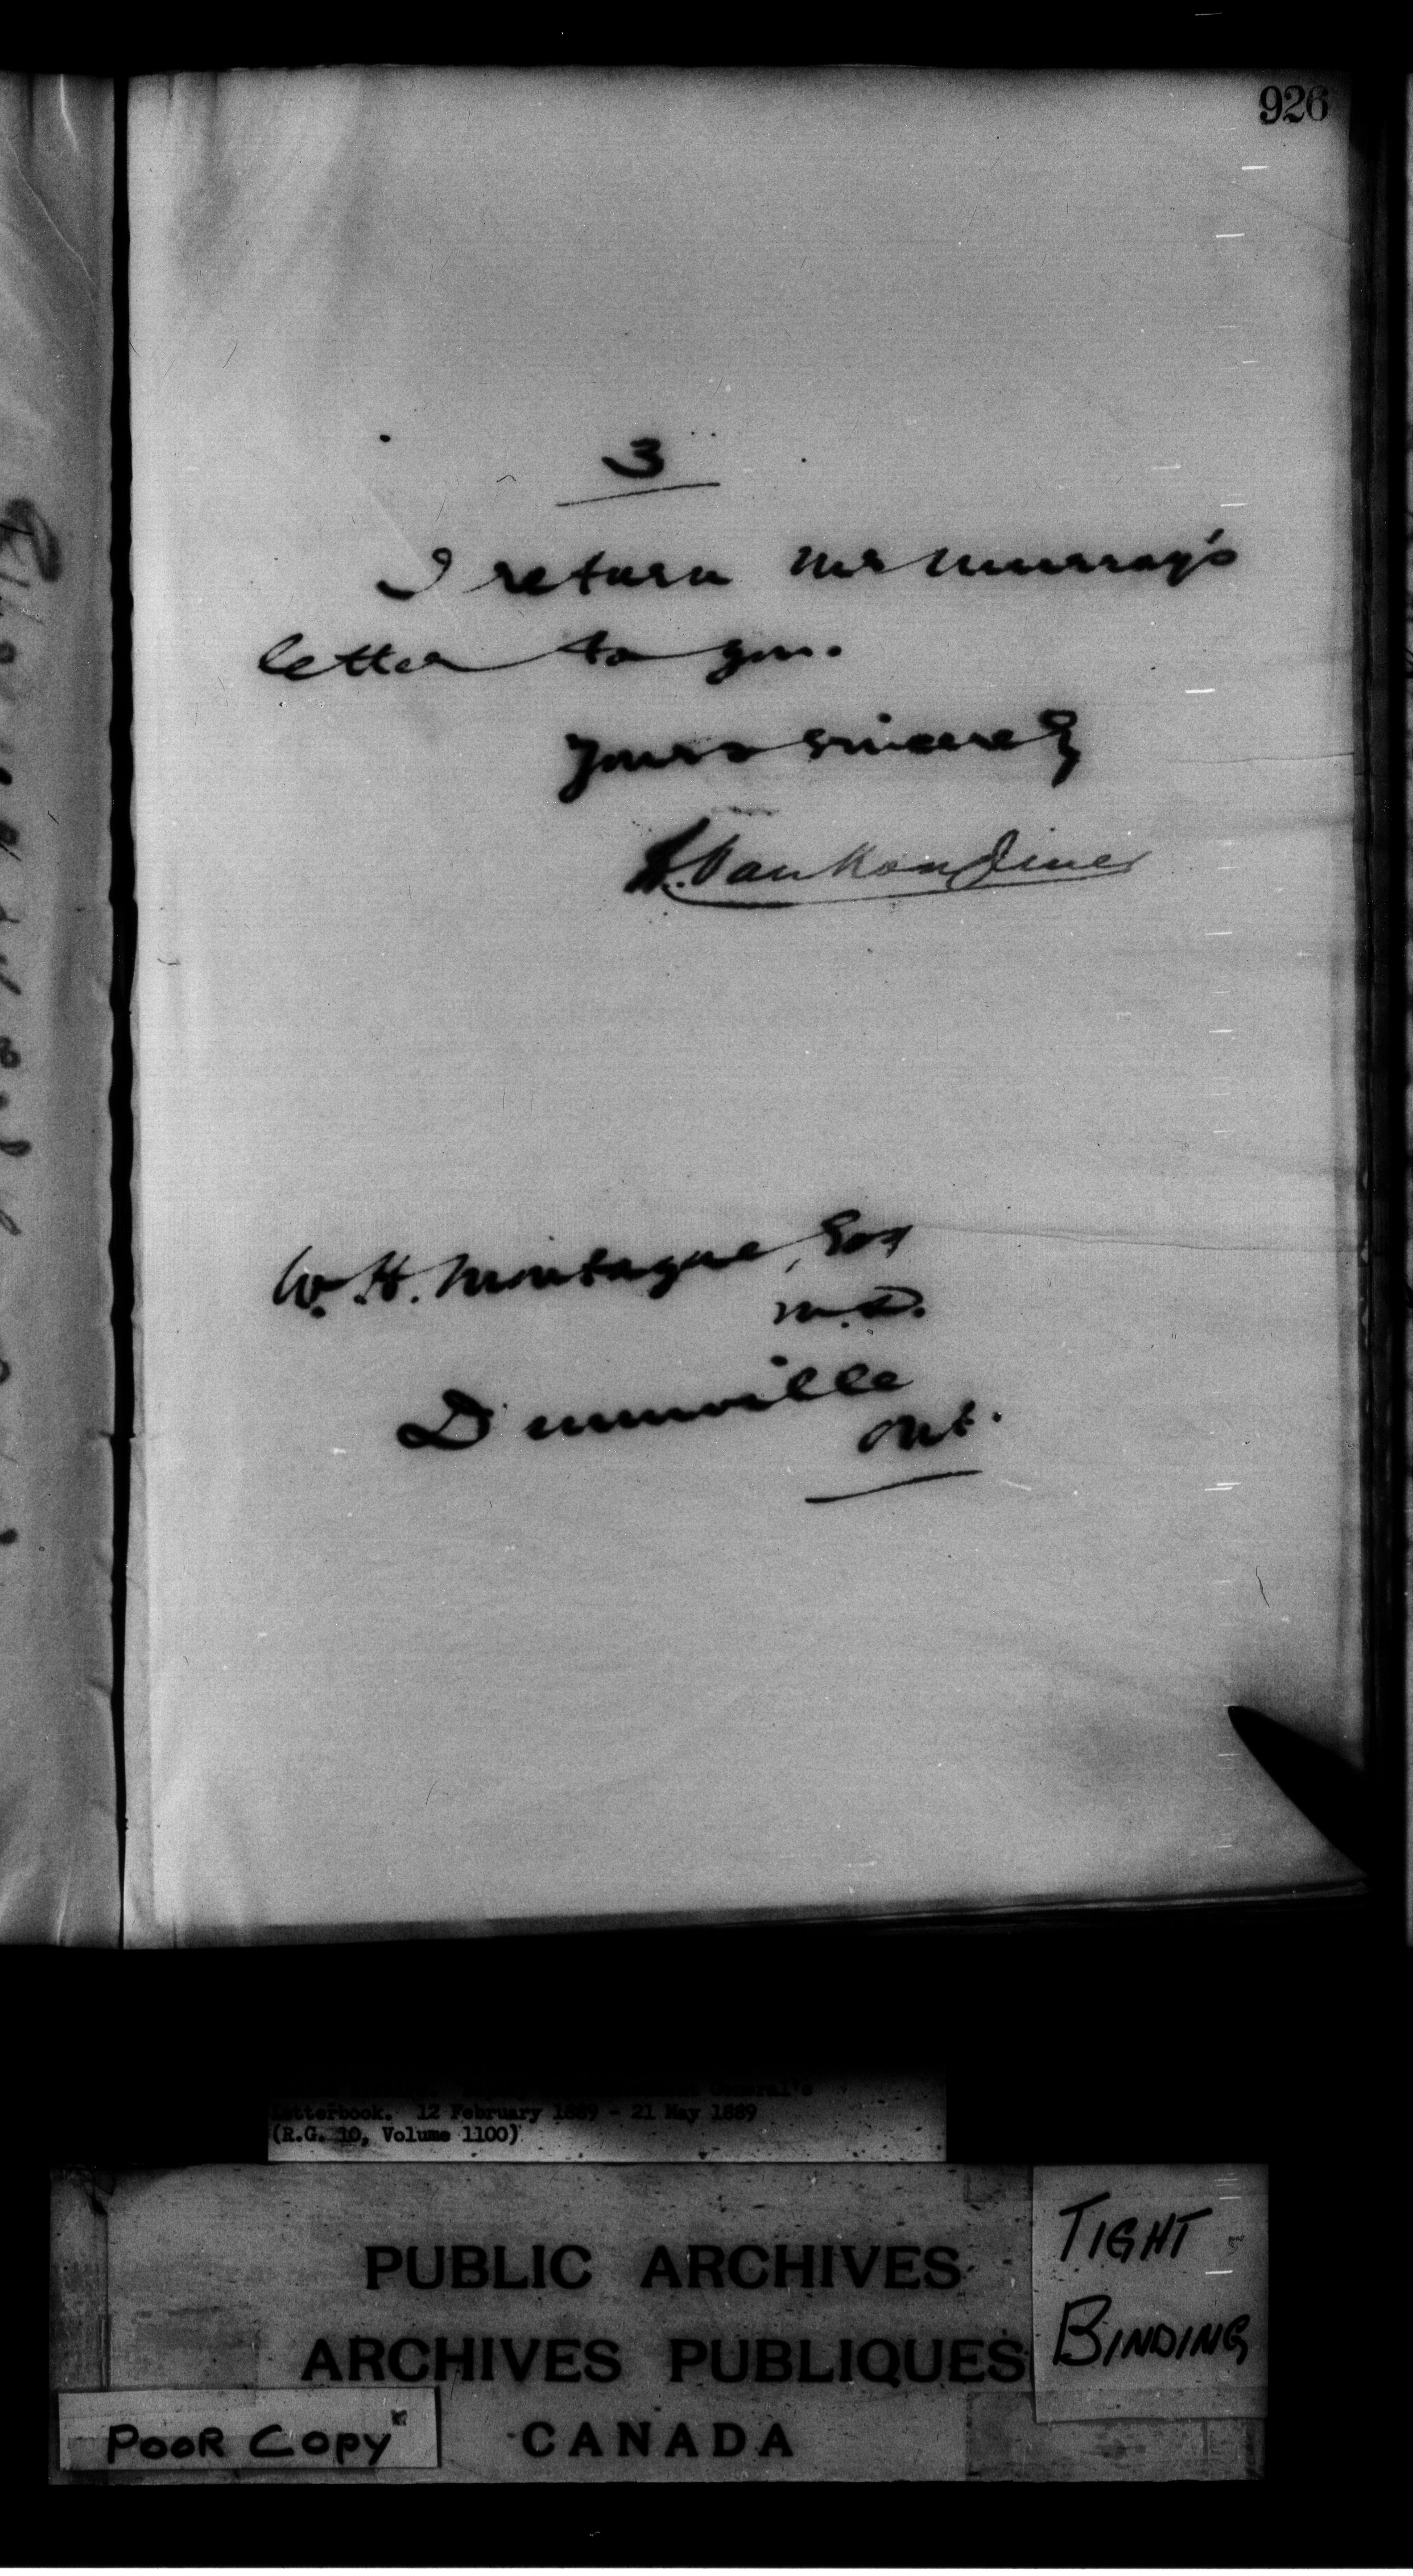 926
3
I return Mr Murray's
letter to you.
Yours sincerely
L. VanKoughnet
W. H. Montague, Esq
M.D.
Dunnville
Ont.
General's
Letterbook. 12 February 1889 - 21 May 1889
(R.G. 10, Volume 1100)
PUBLIC ARCHIVES
ARCHIVES PUBLIQUES
CANADA
TIGHT
BINDING
POOR COPY